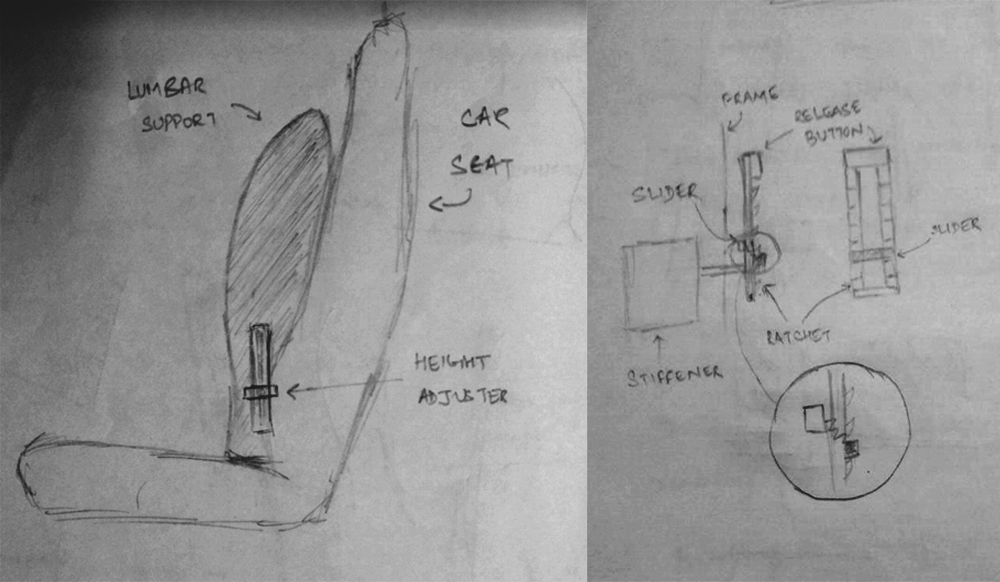 LUMBAR
SUPPORT
CAR
SEAT
HEIGHT
ADJUSTER
FRAME
RELEASE
BUTTON
SLIDER
SLIDER
RATCHET
STIFFENER